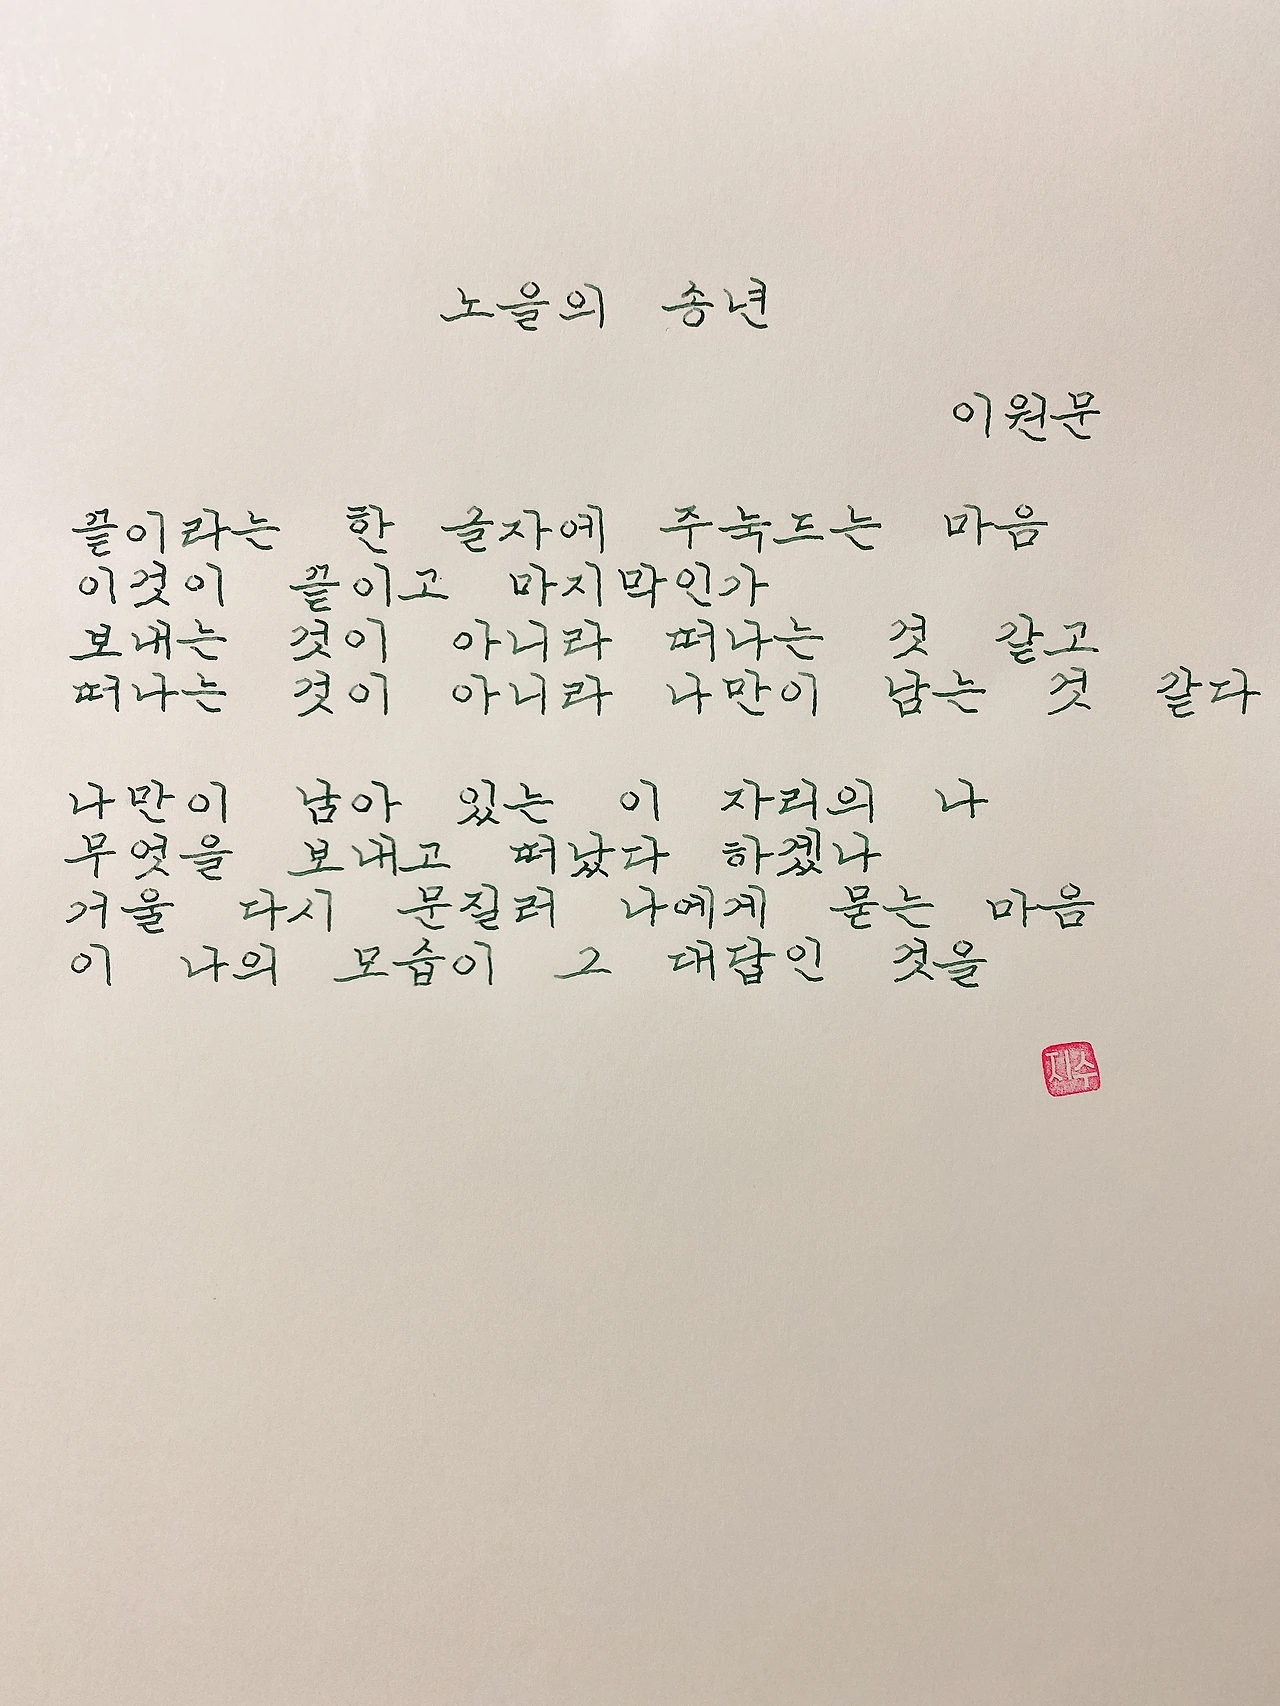 노을의 송년
이원문
끝이라는 한 글자에 주눅드는 마음
이것이 끝이고 마지막인가
보내는 것이 아니라 떠나는 것 같고
떠나는 것이 아니라 나만이 남는 것 같다
나만이 남아 있는 이 자리의 나
무엇을 보내고 떠났다 하겠나
거울 다시 문질러 나에게 묻는 마음
이 나의 모습이 그 대답인 것을
지수